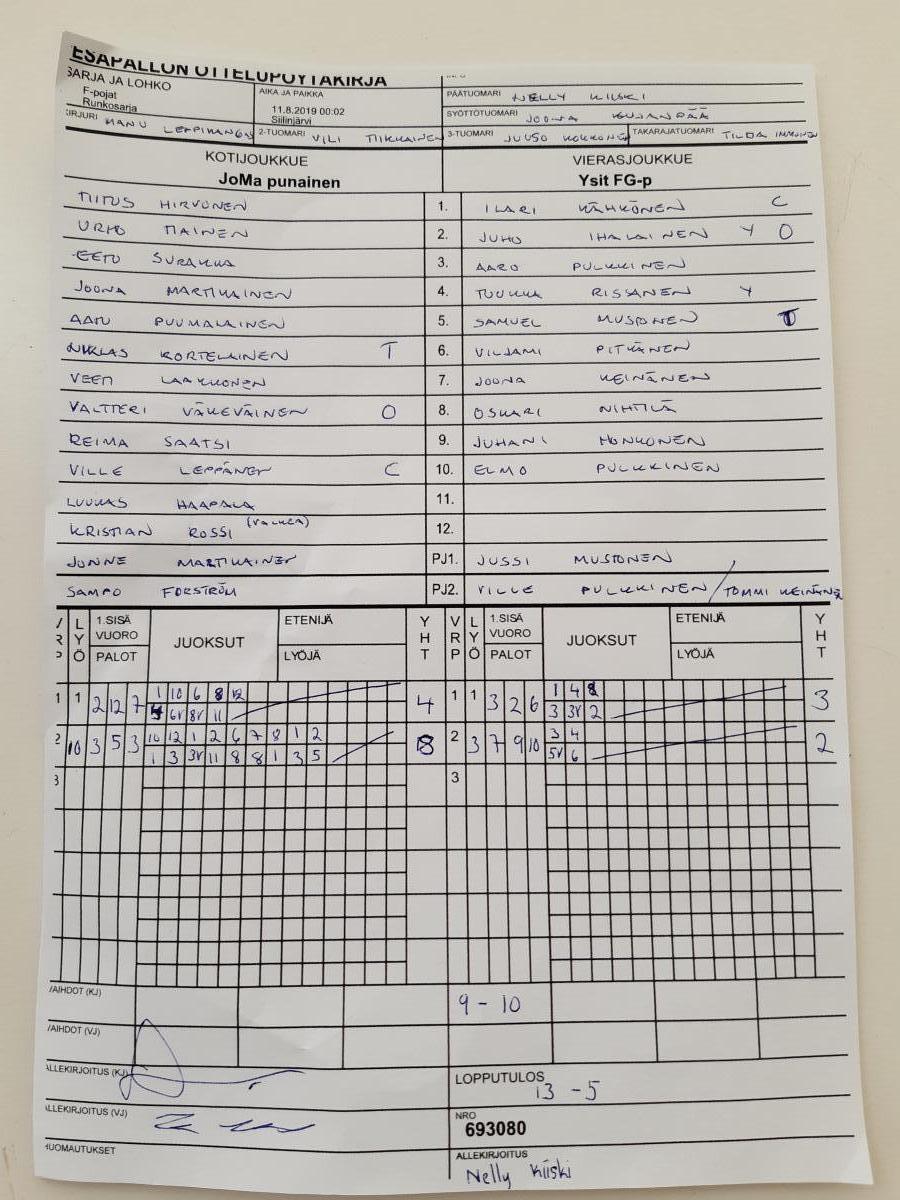 ESÄPALLON OTTELUPÖYTÄKIRJA
SARJA JA LOHKO
F-pojat
Runkosarja
AIKA JA PAIKKA
11.8.2019 00:02
Siilinjärvi
PÄÄTUOMARI NELLY KIISKI
SYÖTTÖTUOMARI JOONA KUJANPÄÄ
KIRJURI MANU LEPPIKANGAS 2-TUOMARI VILI TIIKKAINEN 3-TUOMARI JUUSO KOKKONEN TAKARAJATUOMARI TILDA IMMONEN
KOTIJOUKKUE VIERASJOUKKUE
JoMa punainen Ysit FG-p
TIITUS HIRVONEN 1. ILARI KÄHKÖNEN C
URHO TIAINEN 2. JUHO IHALAINEN Y O
EETU SURAKKA 3. AARO PULKKINEN
JOONA MARTIKAINEN 4. TUUKKA RISSANEN Y
AATU PUUMALAINEN 5. SAMUEL MUSTONEN T
NIKLAS KORTELAINEN T 6. VILJAMI PITKÄNEN
VEETI LAAKKONEN 7. JOONA KEINÄNEN
VALTTERI VÄKEVÄINEN O 8. OSKARI NIHTILÄ
REIMA SAATSI 9. JUHANI HONKONEN
VILLE LEPPÄNEN C 10. ELMO PULKKINEN
LUUKAS HAAPALA 11.
KRISTIAN ROSSI (VALKEA) 12.
JONNE MARTIKAINEN PJ1. JUSSI MUSTONEN
SAMPO FORSTRÖM PJ2. VILLE PULKKINEN / TOMMI KEINÄNEN
VRP LYÖ 1.SISÄ VUORO PALOT JUOKSUT ETENIJÄ LYÖJÄ YHT VRP LYÖ 1.SISÄ VUORO PALOT JUOKSUT ETENIJÄ LYÖJÄ YHT
1 1 2 12 7 1 10 6 8 12 4 1 1 3 2 6 1 4 8 3
4 6V 8V 11 3 3V 2
2 10 3 5 3 10 12 1 2 6 7 8 1 2 8 2 3 7 9 10 3 4 2
1 3 3V 11 8 8 1 3 5 5V 6
3 3
VAIHDOT (KJ) 9 - 10
VAIHDOT (VJ)
ALLEKIRJOITUS (KJ) LOPPUTULOS
13 - 5
ALLEKIRJOITUS (VJ) NRO
693080
HUOMAUTUKSET ALLEKIRJOITUS
Nelly Kiiski